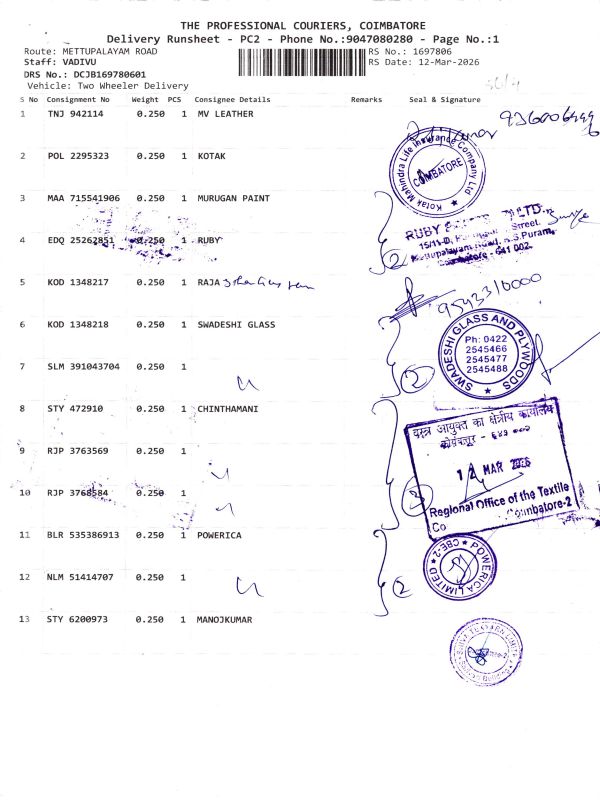 THE PROFESSIONAL COURIERS, COIMBATORE
Delivery Runsheet - PC2 - Phone No.:9047080280 - Page No.:1
Route: METTUPALAYAM ROAD
RS No.: 1697806
Staff: VADIVU
RS Date: 12-Mar-2026
DRS No.: DCJB169780601
Vehicle: Two Wheeler Delivery
S No Consignment No Weight PCS Consignee Details Remarks Seal & Signature
1 TNJ 942114 0.250 1 MV LEATHER
2 POL 2295323 0.250 1 KOTAK
Kotak Mahindra Life Insurance Company Ltd
COIMBATORE
3 MAA 715541906 0.250 1 MURUGAN PAINT
4 EDQ 25262851 0.250 1 RUBY
RUBY LTD.
15/11-D, Street,
Mettupalayam Road, R.S.Puram,
Coimbatore - 641 002.
2
5 KOD 1348217 0.250 1 RAJA
9543310000
6 KOD 1348218 0.250 1 SWADESHI GLASS
SWADESHI GLASS AND PLYWOODS
Ph: 0422
2545466
2545477
2545488
7 SLM 391043704 0.250 1
2
8 STY 472910 0.250 1 CHINTHAMANI
वस्त्र आयुक्त का क्षेत्रीय कार्यालय
कोयंबत्तूर - ६४१ ००२
9 RJP 3763569 0.250 1
12 MAR 2026
10 RJP 3768584 0.250 1
Regional Office of the Textile
Co Coimbatore-2
11 BLR 535386913 0.250 1 POWERICA
POWERICA LIMITED
CBE-2
12 NLM 51414707 0.250 1
2
13 STY 6200973 0.250 1 MANOJKUMAR